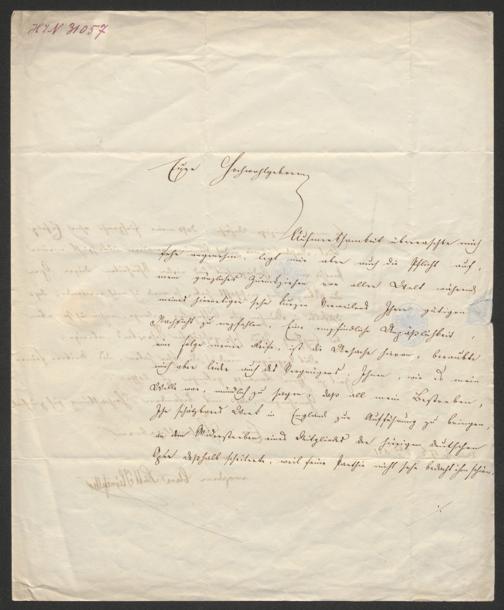 HIN 31057
Euer Hochwohlgeboren
Aufmerksamkeit überraschte mich
sehr angenehm, legt mir aber auch die Pflicht auf,
mein gänzliches Zurückziehen von aller Welt während
meines hiesigen sehr kurzen Verweilens Ihrer gütigen
Nachsicht zu empfehlen. Eine empfindliche Unpäßlichkeit,
ein Folge meiner Reise, ist die Ursache hievon, beraubte
mich aber leider auch des Vergnügens, Ihnen, wie es mein
Wille war, mündlich zu sagen, daß all mein Bestreben,
Ihr schätzbares Werk in England zur Aufführung zu bringen,
an dem Widerstreben eines Mitgliedes der hiesigen deutschen
Oper deßhalb scheiterte, weil seine Parthie nicht sehr bedacht ihm schien.